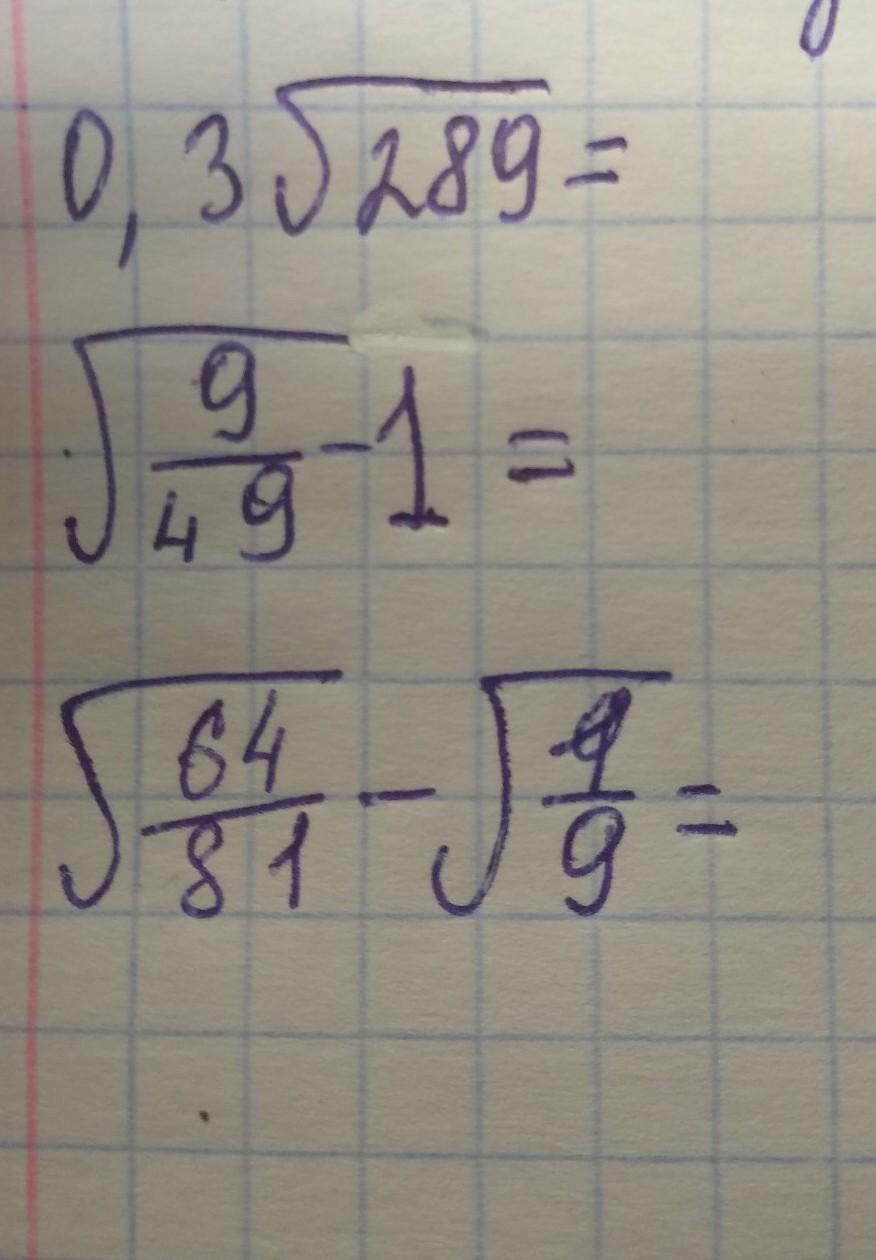 0,3√289 =
√(9/49) - 1 =
√(64/81) - √(4/9) =